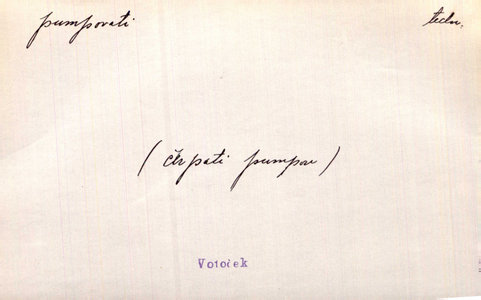 pumpovati techn.
( čerpati pumpou )
Votoček